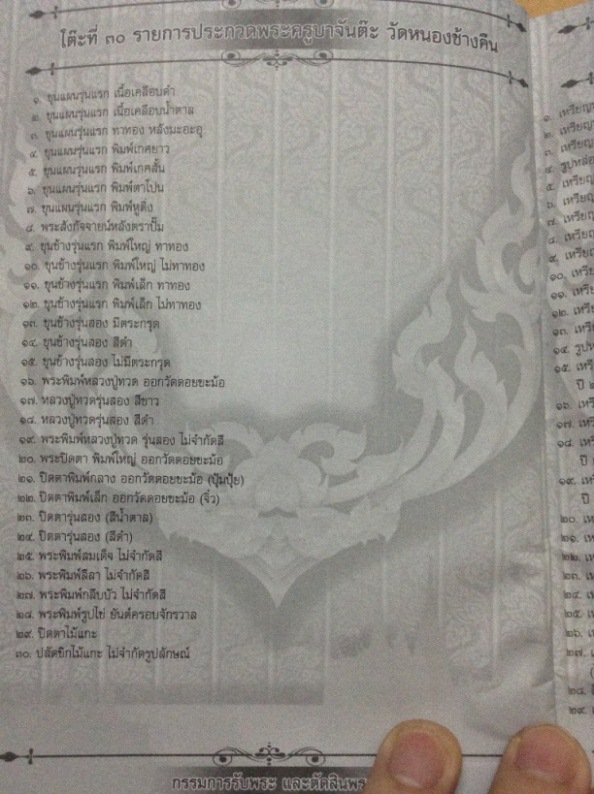 โต๊ะที่ ๓๐ รายการประกวดพระครูบาจันต๊ะ วัดหนองช้างคืน
๑. ขุนแผนรุ่นแรก เนื้อเคลือบดำ
๒. ขุนแผนรุ่นแรก เนื้อเคลือบน้ำตาล
๓. ขุนแผนรุ่นแรก ทาทอง หลังมะอะอุ
๔. ขุนแผนรุ่นแรก พิมพ์เกศยาว
๕. ขุนแผนรุ่นแรก พิมพ์เกศสั้น
๖. ขุนแผนรุ่นแรก พิมพ์ตาโปน
๗. ขุนแผนรุ่นแรก พิมพ์หูติ่ง
๘. พระสังกัจจายน์หลังตราปั๊ม
๙. ขุนช้างรุ่นแรก พิมพ์ใหญ่ ทาทอง
๑๐. ขุนช้างรุ่นแรก พิมพ์ใหญ่ ไม่ทาทอง
๑๑. ขุนช้างรุ่นแรก พิมพ์เล็ก ทาทอง
๑๒. ขุนช้างรุ่นแรก พิมพ์เล็ก ไม่ทาทอง
๑๓. ขุนช้างรุ่นสอง มีตระกรุด
๑๔. ขุนช้างรุ่นสอง สีดำ
๑๕. ขุนช้างรุ่นสอง ไม่มีตระกรุด
๑๖. พระพิมพ์หลวงปู่ทวด ออกวัดดอยขะม้อ
๑๗. หลวงปู่ทวดรุ่นสอง สีขาว
๑๘. หลวงปู่ทวดรุ่นสอง สีดำ
๑๙. พระพิมพ์หลวงปู่ทวด รุ่นสอง ไม่จำกัดสี
๒๐. พระปิดตา พิมพ์ใหญ่ ออกวัดดอยขะม้อ
๒๑. ปิดตาพิมพ์กลาง ออกวัดดอยขะม้อ (ปุ้มปุ้ย)
๒๒. ปิดตาพิมพ์เล็ก ออกวัดดอยขะม้อ (จิ๋ว)
๒๓. ปิดตารุ่นสอง (สีน้ำตาล)
๒๔. ปิดตารุ่นสอง (สีดำ)
๒๕. พระพิมพ์สมเด็จ ไม่จำกัดสี
๒๖. พระพิมพ์ลีลา ไม่จำกัดสี
๒๗. พระพิมพ์กลีบบัว ไม่จำกัดสี
๒๘. พระพิมพ์รูปไข่ ยันต์ครอบจักรวาล
๒๙. ปิดตาไม้แกะ
๓๐. ปลัดขิกไม้แกะ ไม่จำกัดรูปลักษณ์
กรรมการรับพระ และตัดสินพระ